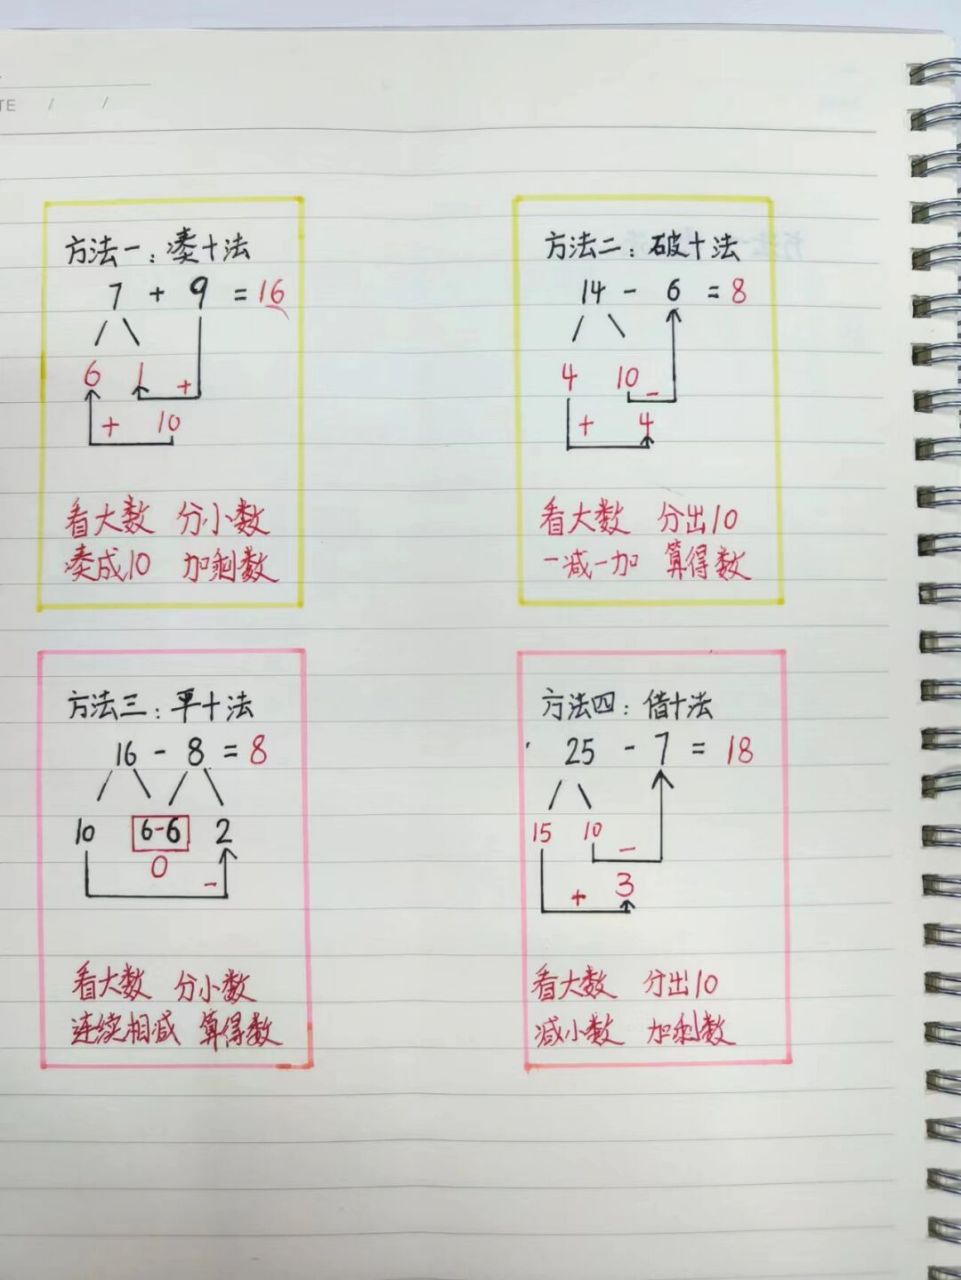 TE / /
方法一：凑十法
7 + 9 = 16
6 1 +
+ 10
看大数 分小数
凑成10 加剩数
方法二：破十法
14 - 6 = 8
4 10 -
+ 4
看大数 分出10
一减一加 算得数
方法三：平十法
16 - 8 = 8
10 6-6 2
0
-
看大数 分小数
连续相减 算得数
方法四：借十法
25 - 7 = 18
15 10
-
+ 3
看大数 分出10
减小数 加剩数